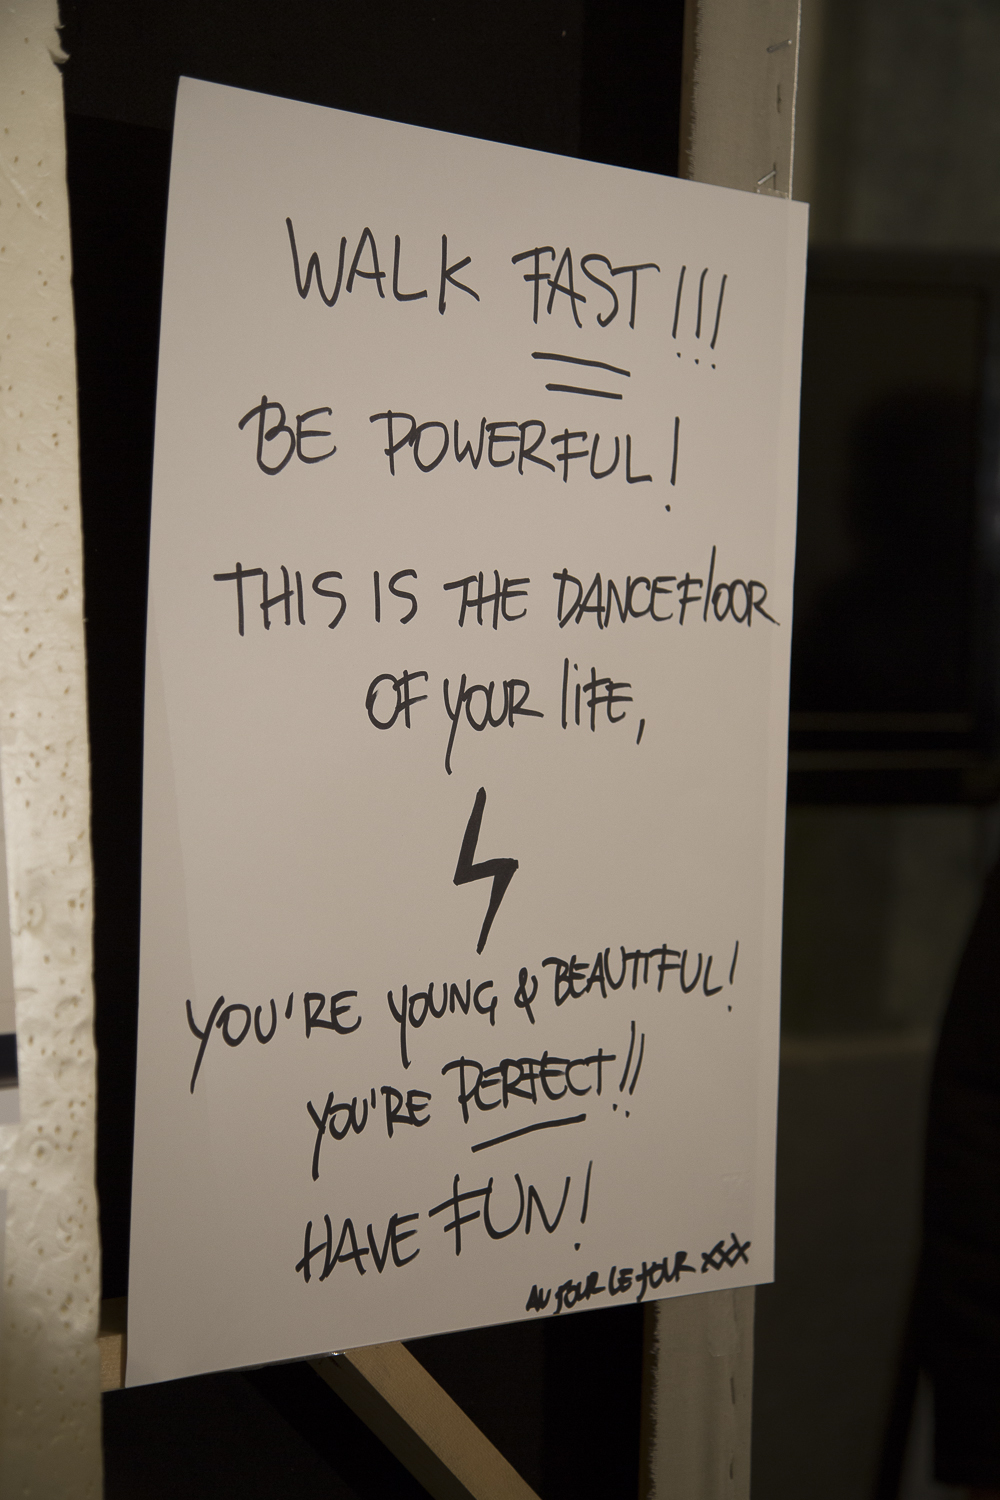 WALK FAST!!!
BE POWERFUL!
THIS IS THE DANCEFlOOR
OF YOUR lIFE,
YOU'RE YOUNG & BEAUTIFUL!
YOU'RE PERFECT!!
HAVE FUN!
AU JOUR LE JOUR XXX